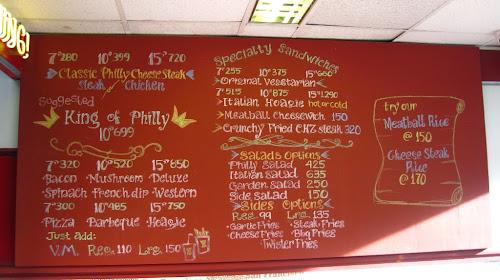 ING!
7" 280 10" 399 15" 720
Classic Philly Cheese Steak
Steak Chicken
Suggested
King of Philly
10" 699
7" 320 10" 520 15" 850
Bacon Mushroom Deluxe
Spinach french dip Western
7" 300 10" 485 15" 750
Pizza Barbeque Hoagie
Just add:
V.M. Reg. 110 Lrg. 150
Specialty Sandwiches
7" 255 10" 375 15" 660
Original Vegetarian
7" 515 10" 875 15" 1290
Italian Hoagie hot or cold
Meatball Cheesewich 150
Crunchy Fried CHZ steak 320
Salads Options
Philly Salad 425
Italian Salad 635
Garden Salad 250
Side Salad 150
Sides Options
Reg. 99 Lrg. 135
Garlic Fries Steak Fries
Cheese Fries Bbq Fries
Twister Fries
try our
Meatball Rice
@ 150
Cheese Steak
Rice
@ 170